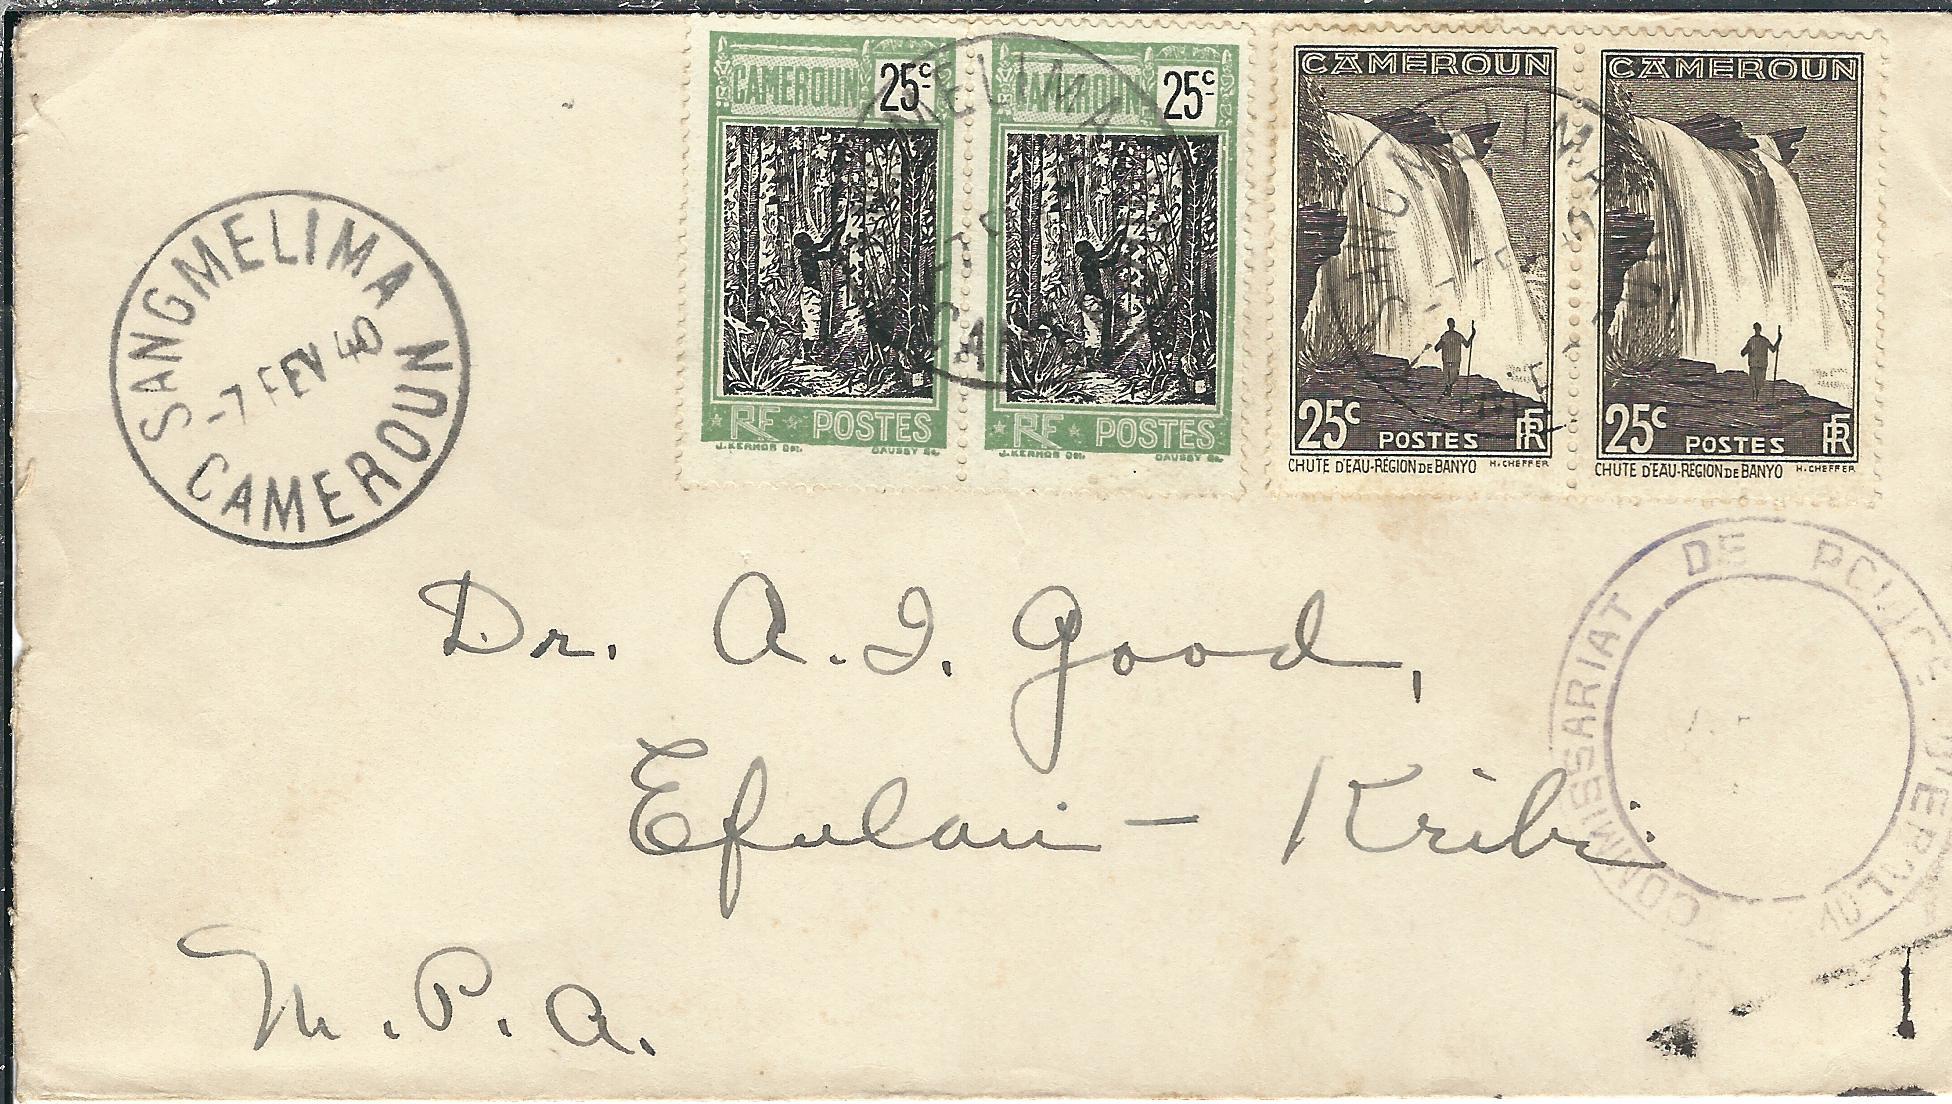 CAMEROUN 25c
RF POSTES
J. KERHOR DEL. DAUSSY SC.
CAMEROUN 25c
RF POSTES
J. KERHOR DEL. DAUSSY SC.
CAMEROUN
25c POSTES RF
CHUTE D'EAU-RÉGION DE BANYO H. CHEFFER
CAMEROUN
25c POSTES RF
CHUTE D'EAU-RÉGION DE BANYO H. CHEFFER
SANGMELIMA
-7 FEV 40
CAMEROUN
COMMISSARIAT DE POLICE
Dr. A. I. Good,
Efulan - Kribi
M.P.A.